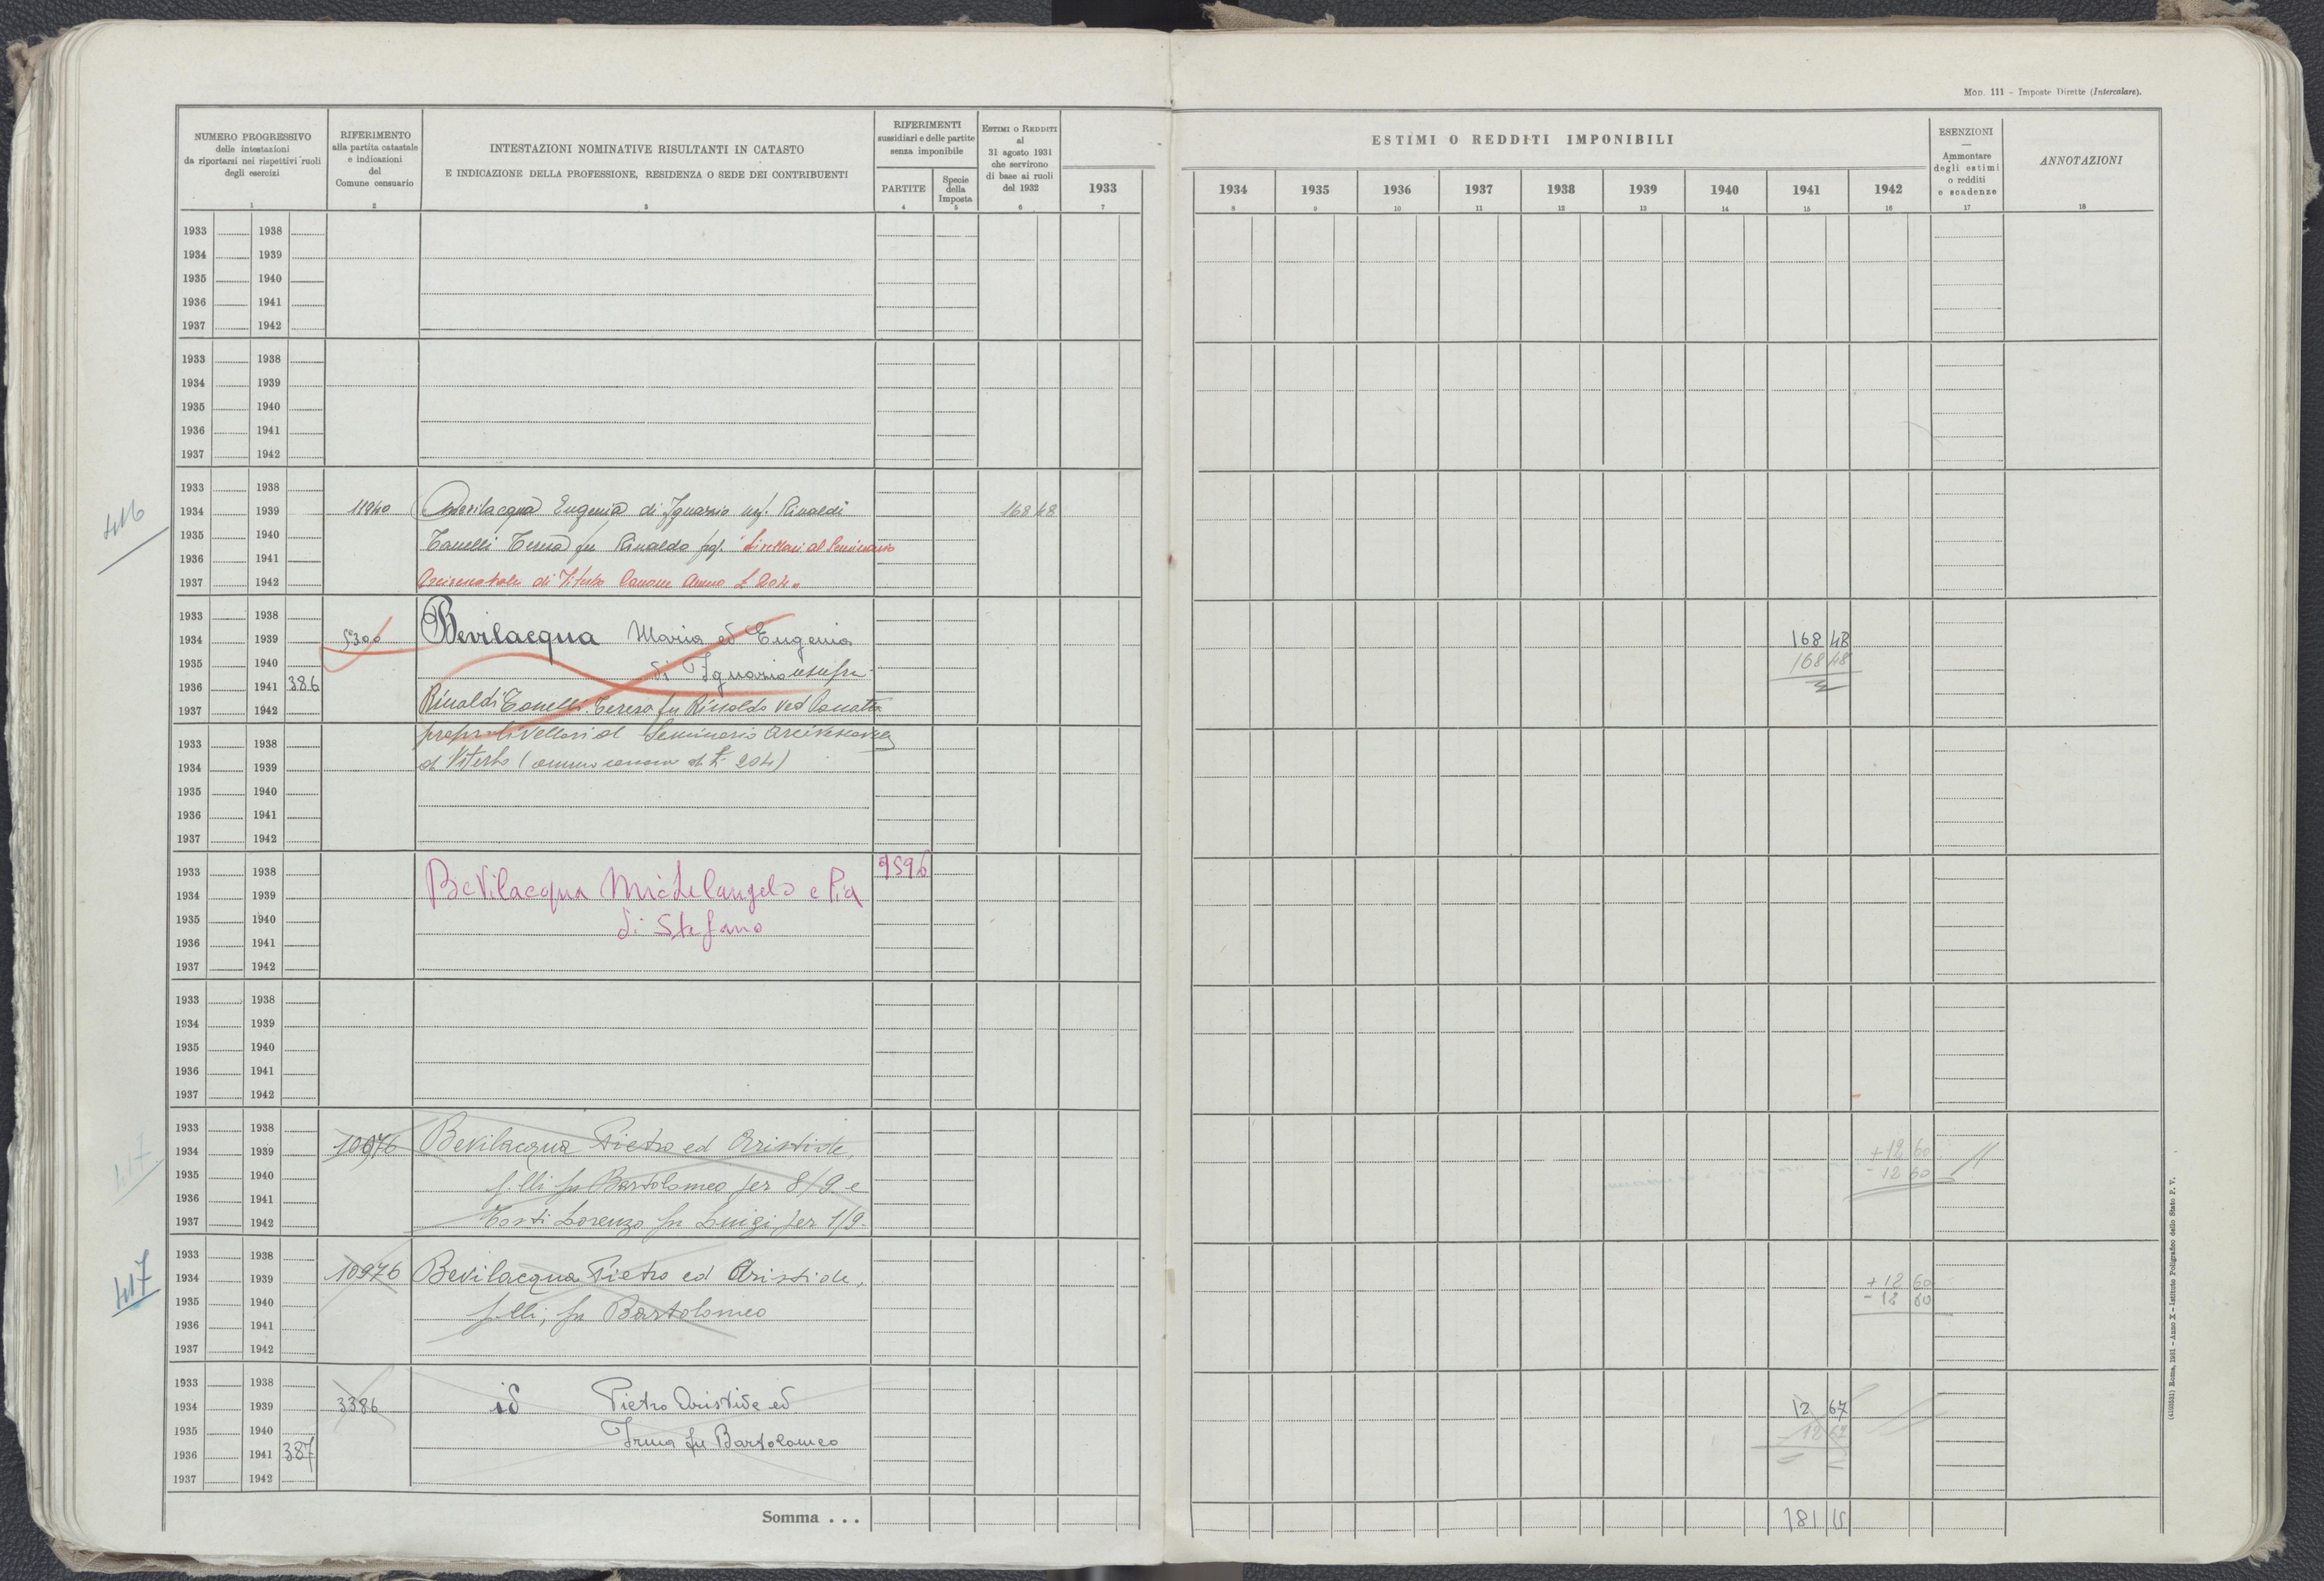 Mod. 111 – Imposte Dirette (Intercalare).
NUMERO PROGRESSIVO
delle intestazioni
da riportarsi nei rispettivi ruoli
degli esercizi
1
RIFERIMENTO
alla partita catastale
e indicazioni
del
Comune censuario
2
INTESTAZIONI NOMINATIVE RISULTANTI IN CATASTO
E INDICAZIONE DELLA PROFESSIONE, RESIDENZA O SEDE DEI CONTRIBUENTI
3
RIFERIMENTI
sussidiari e delle partite
senza imponibile
PARTITE
4
Specie
della
Imposta
5
ESTIMI O REDDITI
al
31 agosto 1931
che servirono
di base ai ruoli
del 1932
6
1933
7
ESTIMI O REDDITI IMPONIBILI
1934 1935 1936 1937 1938 1939 1940 1941 1942
8 9 10 11 12 13 14 15 16
ESENZIONI
—
Ammontare
degli estimi
o redditi
e scadenze
17
ANNOTAZIONI
18
1933 1938
1934 1939
1935 1940
1936 1941
1937 1942
1933 1938
1934 1939
1935 1940
1936 1941
1937 1942
416
1933 1938
1934 1939 11840 Bevilacqua Eugenia di Ignazio usf. Rinaldi 168 48
1935 1940 Tanelli Teresa fu Rinaldo prop. livellari al Seminario
1936 1941
1937 1942 di Viterbo Canone Annuo L 204
1933 1938
1934 1939 5300 Bevilacqua Maria ed Eugenia 168 48
1935 1940 di Ignazio usufr. 168 48
1936 1941 386
1937 1942 Rinaldi Tonelli Teresa fu Rinaldo ved
1933 1938 propr. livellari al Seminario
1934 1939 di Viterbo (annuo canone di £ 204)
1935 1940
1936 1941
1937 1942
1933 1938 9596
1934 1939 Bevilacqua Michelangelo e Pia
1935 1940 di Stefano
1936 1941
1937 1942
1933 1938
1934 1939
1935 1940
1936 1941
1937 1942
417
1933 1938
1934 1939 10976 Bevilacqua Pietro ed Aristide, +12 60
1935 1940 f.lli fu Bartolomeo per 8/9 e -12 60
1936 1941
1937 1942 Tosti Lorenzo fu Luigi per 1/9.
417
1933 1938
1934 1939 10976 Bevilacqua Pietro ed Aristide, +12 60
1935 1940 f.lli, fu Bartolomeo -12 60
1936 1941
1937 1942
1933 1938
1934 1939 3386 id Pietro Aristide ed 12 67
1935 1940 Irma fu Bartolomeo -12 67
1936 1941 387
1937 1942
Somma . . . 181 15
(4102531) Roma, 1931 – Anno X – Istituto Poligrafico dello Stato P. V.